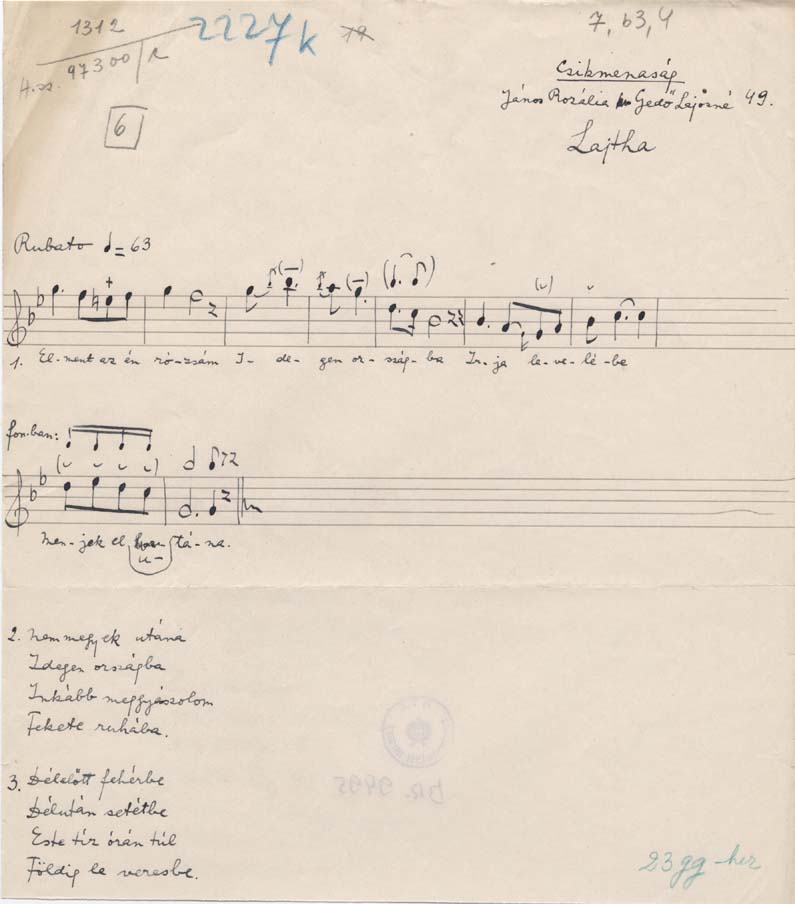 1312
2227k
19
7, 63, 4
H.sz. 97300/
6
Csíkmenaság
János Rozália Gedő Lajosné 49.
Lajtha
Rubato = 63
1. El-ment az én ró-zsám I- de- gen or- szág-ba Ir-ja le-ve-lé-be
fon-ban:
Men-jek el u- tá-na.
2. Nem megyek utána
Idegen országba
Inkább meggyászolom
Fekete ruhába.
3. Délelőtt fehérbe
Délután setétbe
Este tíz órán túl
Földig le veresbe.
BR. 9495
23gg-her